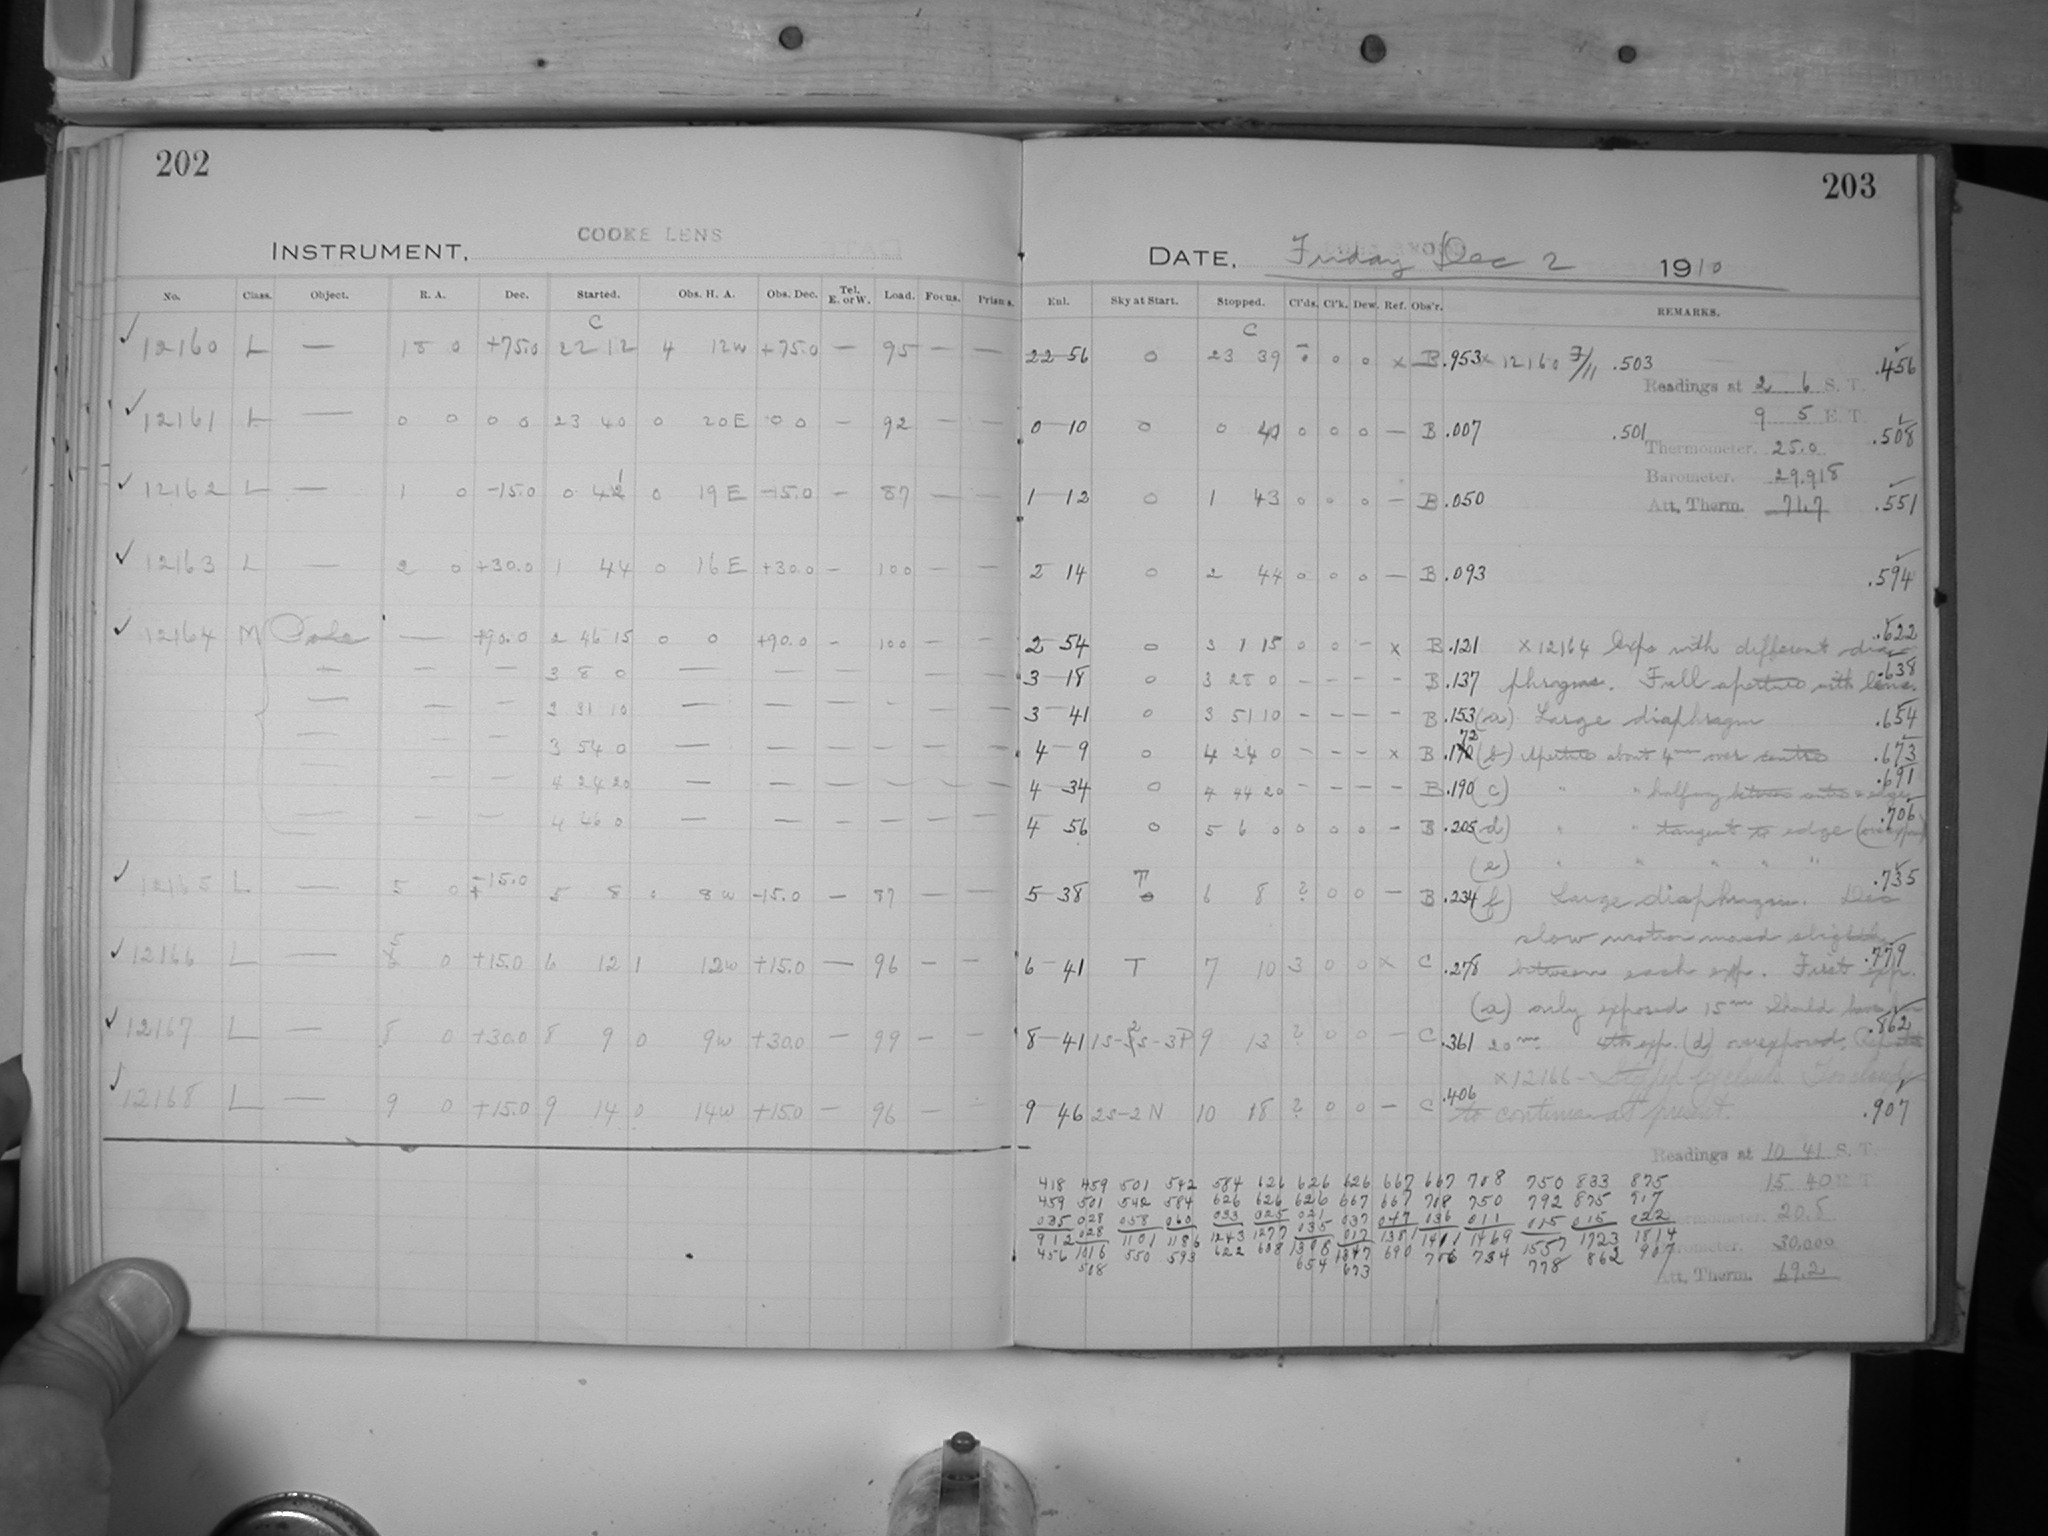 202
COOKE LENS
INSTRUMENT.
No. Class. Object. R. A. Dec. Started. Obs. H. A. Obs. Dec. Tel. E. or W. Load. Focus. Prisms.
C
12160 L — 18 0 +75.0 22 12 4 12W +75.0 — 95 — —
12161 L — 0 0 0 0 23 40 0 20E 0 0 — 92 — —
12162 L — 1 0 -15.0 0 42 0 19E -15.0 — 87 — —
12163 L — 2 0 +30.0 1 44 0 16E +30.0 — 100 — —
12164 M Pole — +90.0 2 46 15 0 0 +90.0 — 100 — —
— — — 3 8 0 — — — —
— — — 3 31 10 — — — — — —
— — — 3 54 0 — — — — — —
— — 4 24 20 — — — — — —
— — — 4 46 0 — — — — — —
12165 L — 5 0 -15.0 5 8 0 8W -15.0 — 87 — —
12166 L — 5 0 +15.0 6 12 1 12W +15.0 — 96 — —
12167 L — 8 0 +30.0 8 9 0 9W +30.0 — 99 — —
12168 L — 9 0 +15.0 9 14 0 14W +15.0 — 96 — —
203
DATE, Friday Dec 2 1910
Enl. Sky at Start. Stopped. Cl'ds. Cl'k. Dew. Ref. Obs'r. REMARKS.
C
22 56 0 23 39 0 0 0 x B .953 x 12160 F/11 .503 .456
Readings at 2 6 S. T.
9 5 E. T.
0 10 0 0 40 0 0 0 — B .007 .501 .508
Thermometer. 25.0
Barometer. 29.918
1 12 0 1 43 0 0 0 — B .050 .551
Att. Therm. 71.7
2 14 0 2 44 0 0 0 — B .093 .594
2 54 0 3 1 15 0 0 — x B .121 x 12164 Exps with different dia- .622
3 18 0 3 28 0 — — — — B .137 phragms. Full aperture with lens. .638
3 41 0 3 51 10 — — — — B .153 (a) Large diaphragm .654
4 9 0 4 24 0 — — — x B .172 (b) Aperture about 4 mm over centre .673
4 34 0 4 44 20 — — — — B .190 (c) " " halfway between centre & edge .691
4 56 0 5 6 0 0 0 0 — B .205 (d) " " tangent to edge (overexposed) .706
(e) " " " " "
T
5 38 0 6 8 ? 0 0 — B .234 (f) Large diaphragm. Dec .735
slow motion moved slightly
6 41 T 7 10 3 0 0 x C .278 between each exp. First exp. .779
(a) only exposed 15 m should have been
8 41 1S-2S-3P 9 13 ? 0 0 — C .361 20 m. 4th exp. (d) overexposed. .862
x 12166 – Stopped by clouds. Too cloudy
9 46 2S-2N 10 18 ? 0 0 — C .406 to continue at present. .907
Readings at 10 41 S. T.
15 40 E. T.
Thermometer. 20.5
Barometer. 30.000
Att. Therm. 69.2
418 459 501 542 584 626 626 626 667 667 708 750 833 875
459 501 542 584 626 626 626 667 667 708 750 792 875 917
035 028 058 060 033 025 021 037 047 036 011 015 015 022
912 028 1101 1186 1243 1277 035 017 1381 1411 1469 1557 1723 1814
456 1016 550 593 622 638 1308 1347 690 706 734 778 862 907
508 654 673